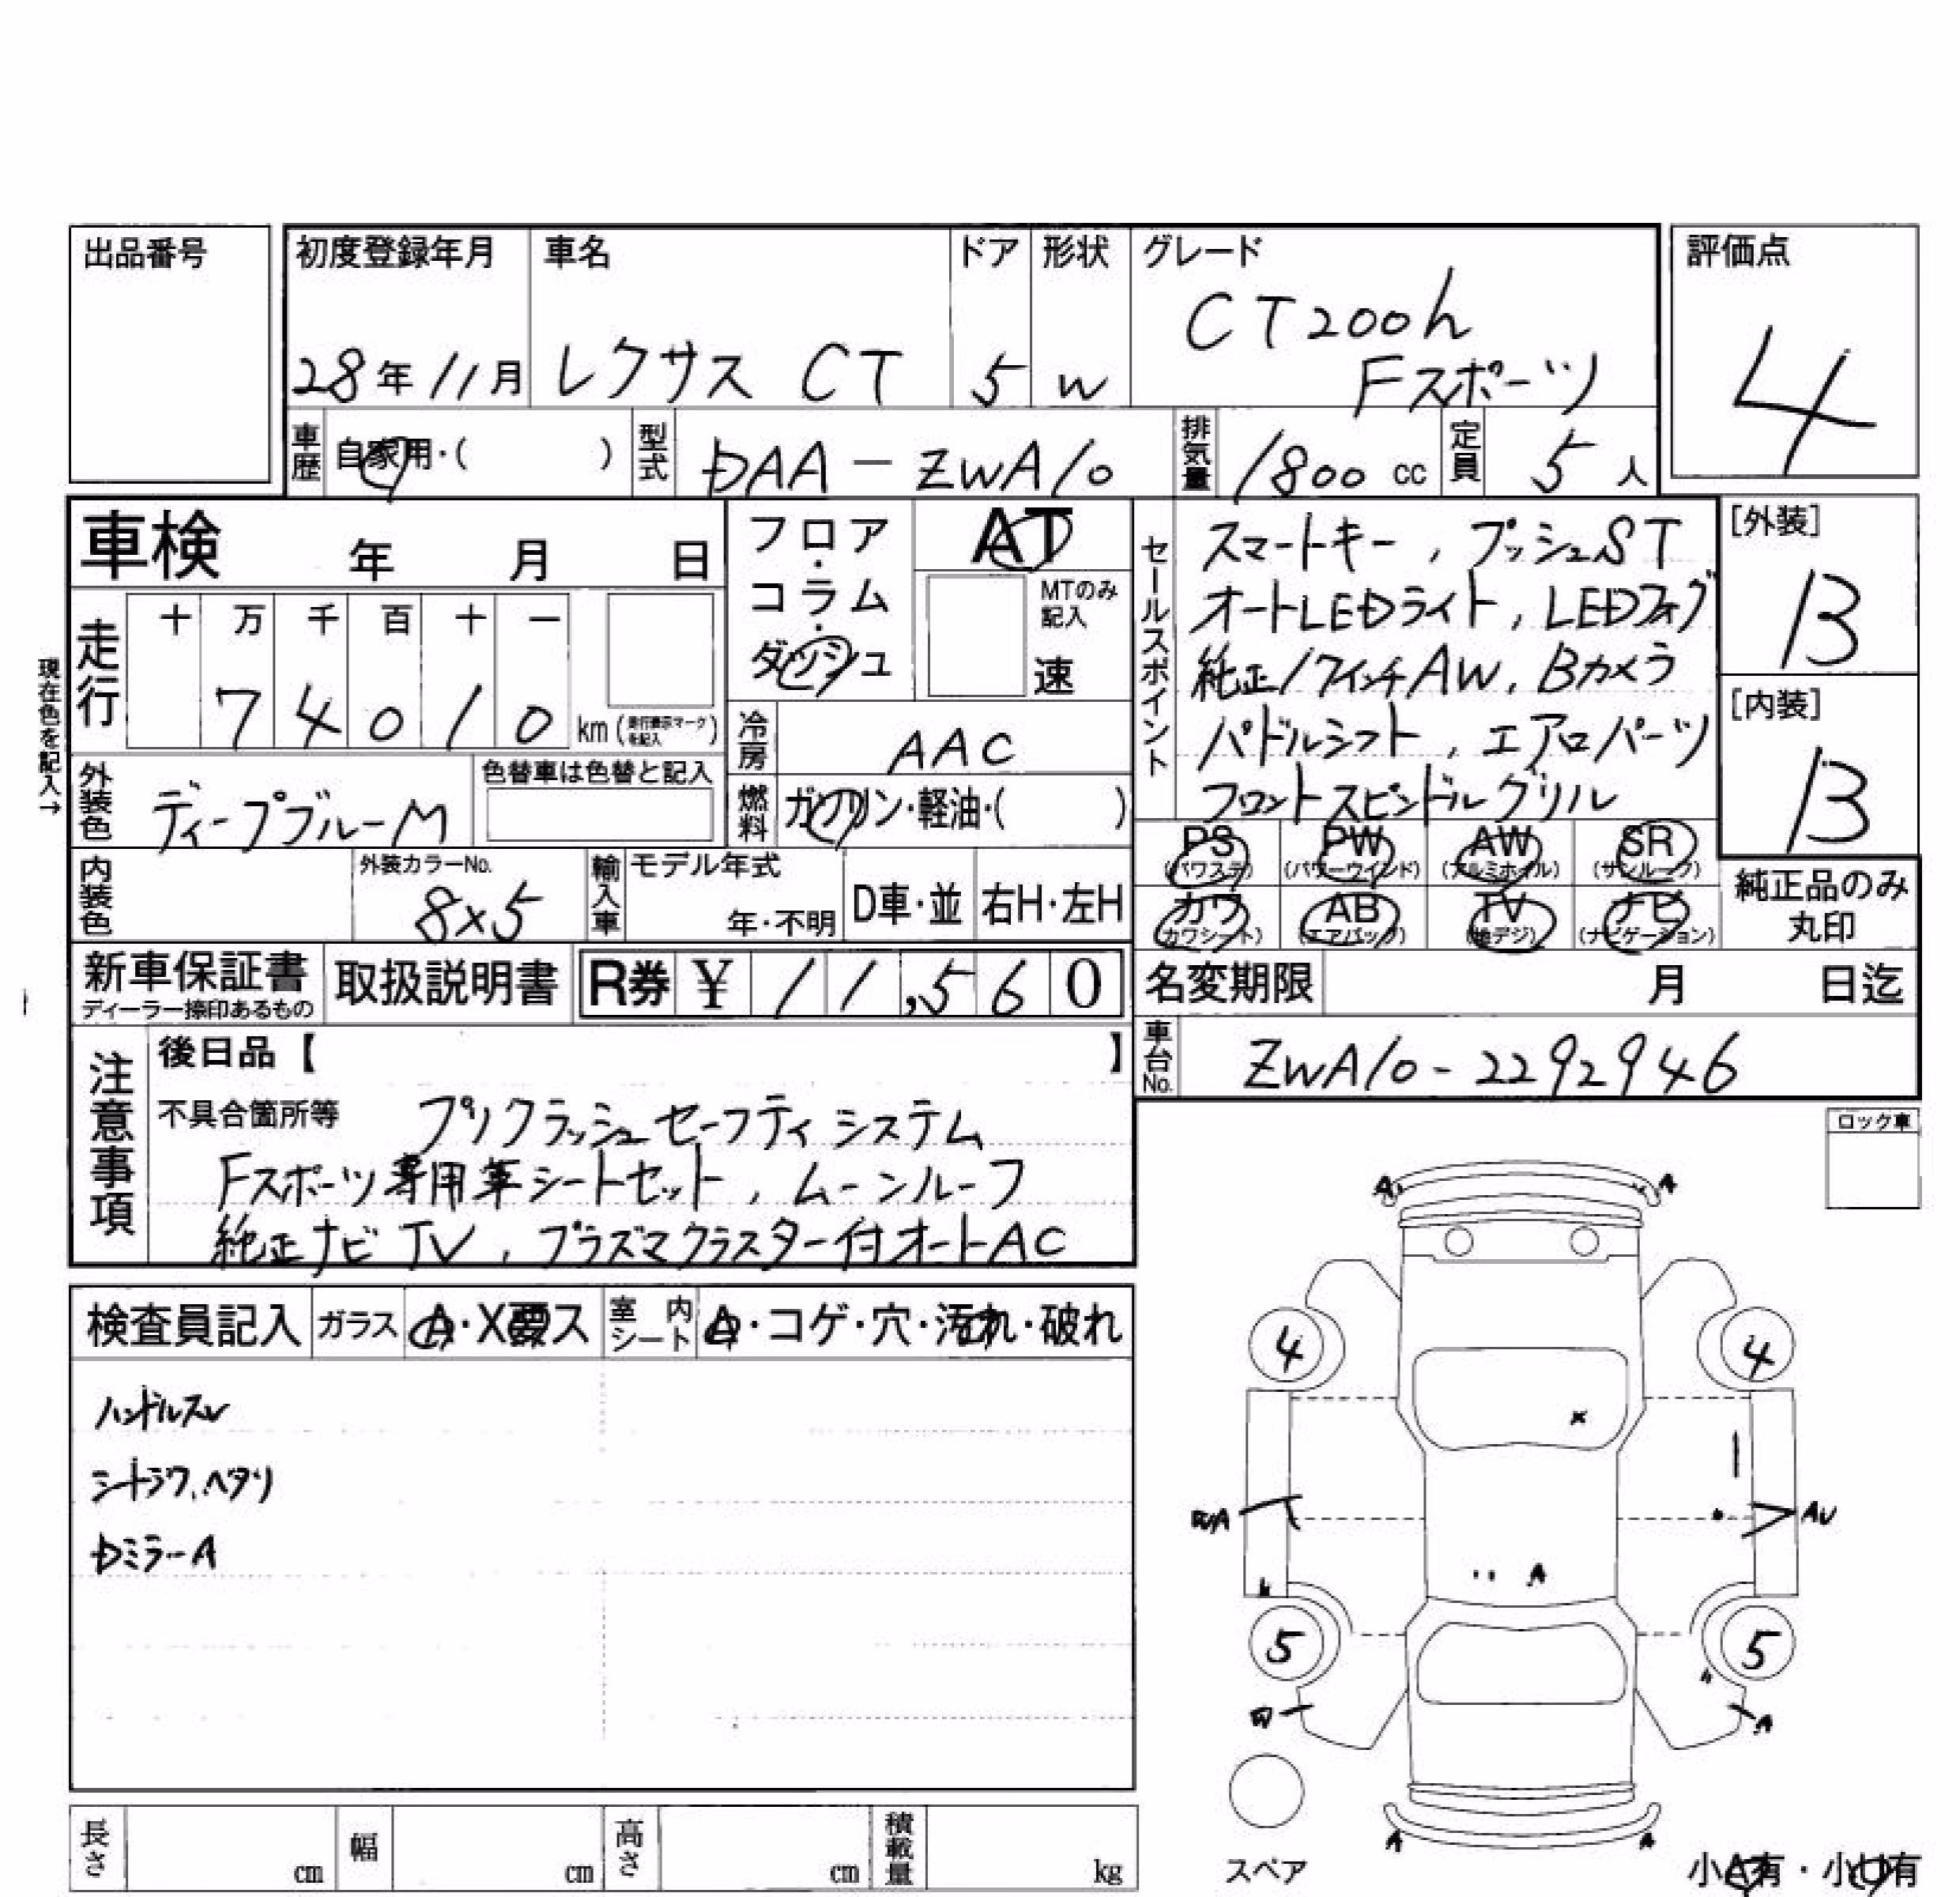 出品番号
初度登録年月 車名 ドア 形状 グレード 評価点
28年11月 レクサス CT 5 W CT200h
Fスポーツ
4
車歴 自家用・( ) 型式 DAA-ZWA10 排気量 1800 cc 定員 5 人
車検 年 月 日
フロア・コラム・ダッシュ
AT
MTのみ記入
速
セールスポイント
スマートキー, プッシュST
オートLEDライト, LEDフォグ
純正17インチAW, Bカメラ
パドルシフト, エアロパーツ
フロントスピンドルグリル
[外装]
B
[内装]
B
現在色を記入→
走行 十 万 千 百 十 一
7 4 0 1 0 km (走行表示マークを記入)
冷房 AAC
外装色 ディープブルーM 色替車は色替と記入
燃料 ガソリン・軽油・( )
内装色 外装カラーNo. 8X5
輸入車 モデル年式 年・不明 D車・並 右H・左H
PS (パワステ) PW (パワーウインド) AW (アルミホイル) SR (サンルーフ)
カワ (カワシート) AB (エアバッグ) TV (地デジ) ナビ (ナビゲーション)
純正品のみ丸印
新車保証書 ディーラー捺印あるもの
取扱説明書
R券 ¥ 11,560
名変期限 月 日迄
車台No. ZWA10-2292946
注意事項
後日品【 】
不具合箇所等 プリクラッシュセーフティシステム
Fスポーツ専用革シートセット, ムーンルーフ
純正ナビTV, プラズマクラスター付オートAC
ロック車
検査員記入 ガラス A・X要ス 室内シート A・コゲ・穴・汚れ・破れ
ハンドルスレ
シートシワ,ヘタリ
Dミラー A
A A
4 4
X
AU
A
5 5
A
A A
スペア
小A有・小U有
長さ cm 幅 cm 高さ cm 積載量 kg